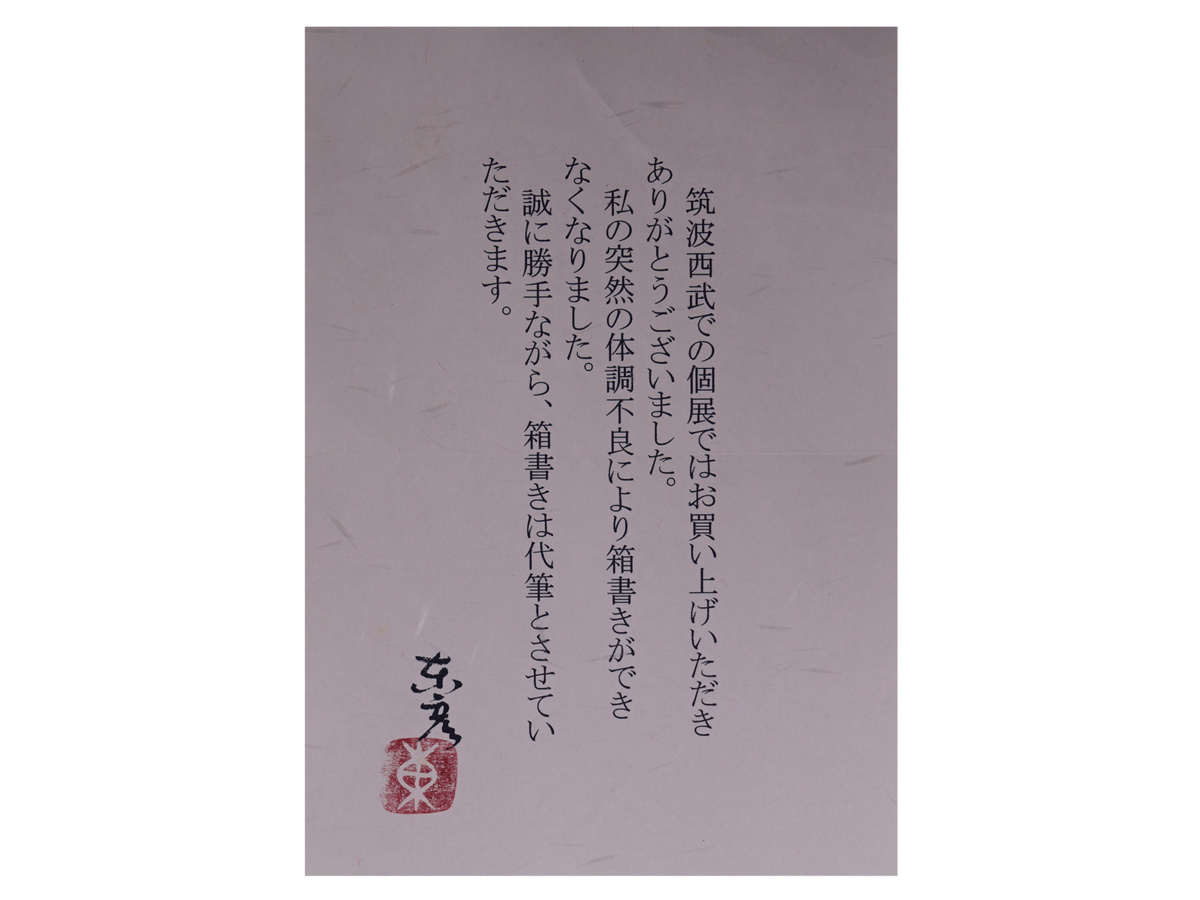 筑波西武での個展ではお買い上げいただき
ありがとうございました。
私の突然の体調不良により箱書きができ
なくなりました。
誠に勝手ながら、箱書きは代筆とさせてい
ただきます。
东彦
東